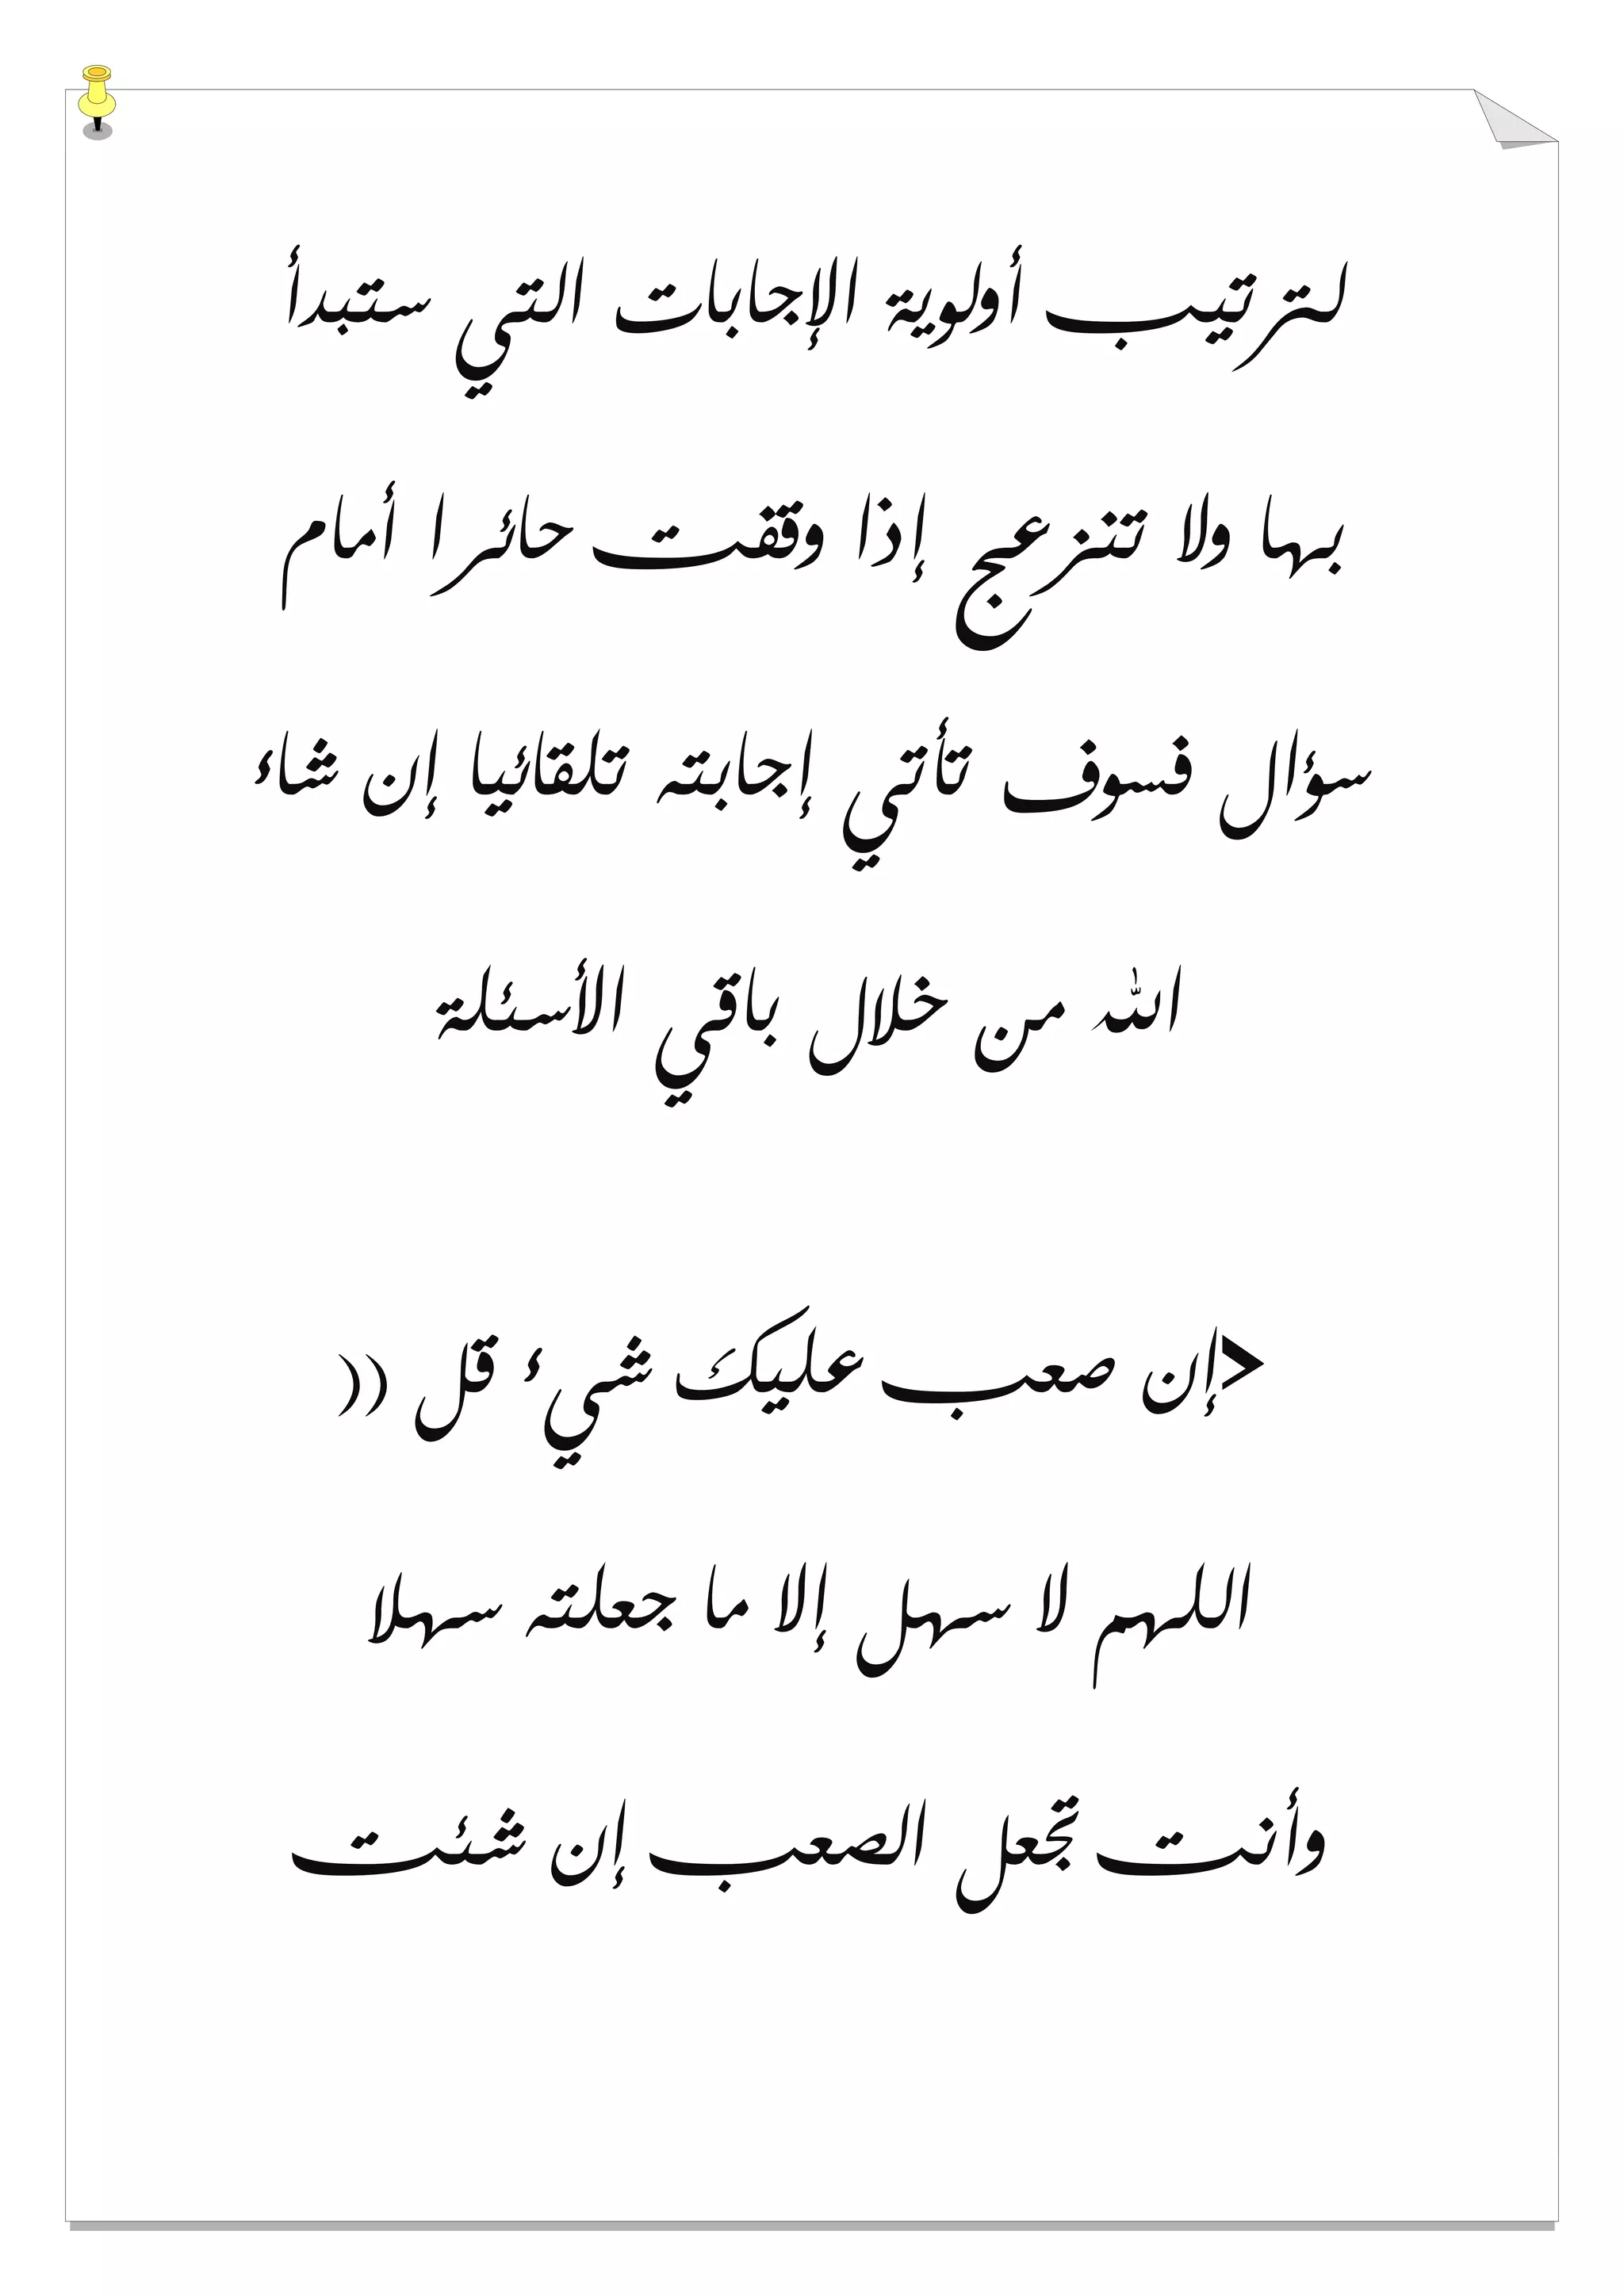 لترتيب أولوية الإجابات التي ستبدأ
بها ولا تنزعج إذا وقفت حائرا أمام
سؤال فسوف تأتي إجابته تلقائيا إن شاء
الله من خلال باقي الأسئلة
إن صعب عليكَ شيء قل ((
اللهم لا سهل إلا ما جعلته سهلا
وأنت تجعل الصعب إن شئت